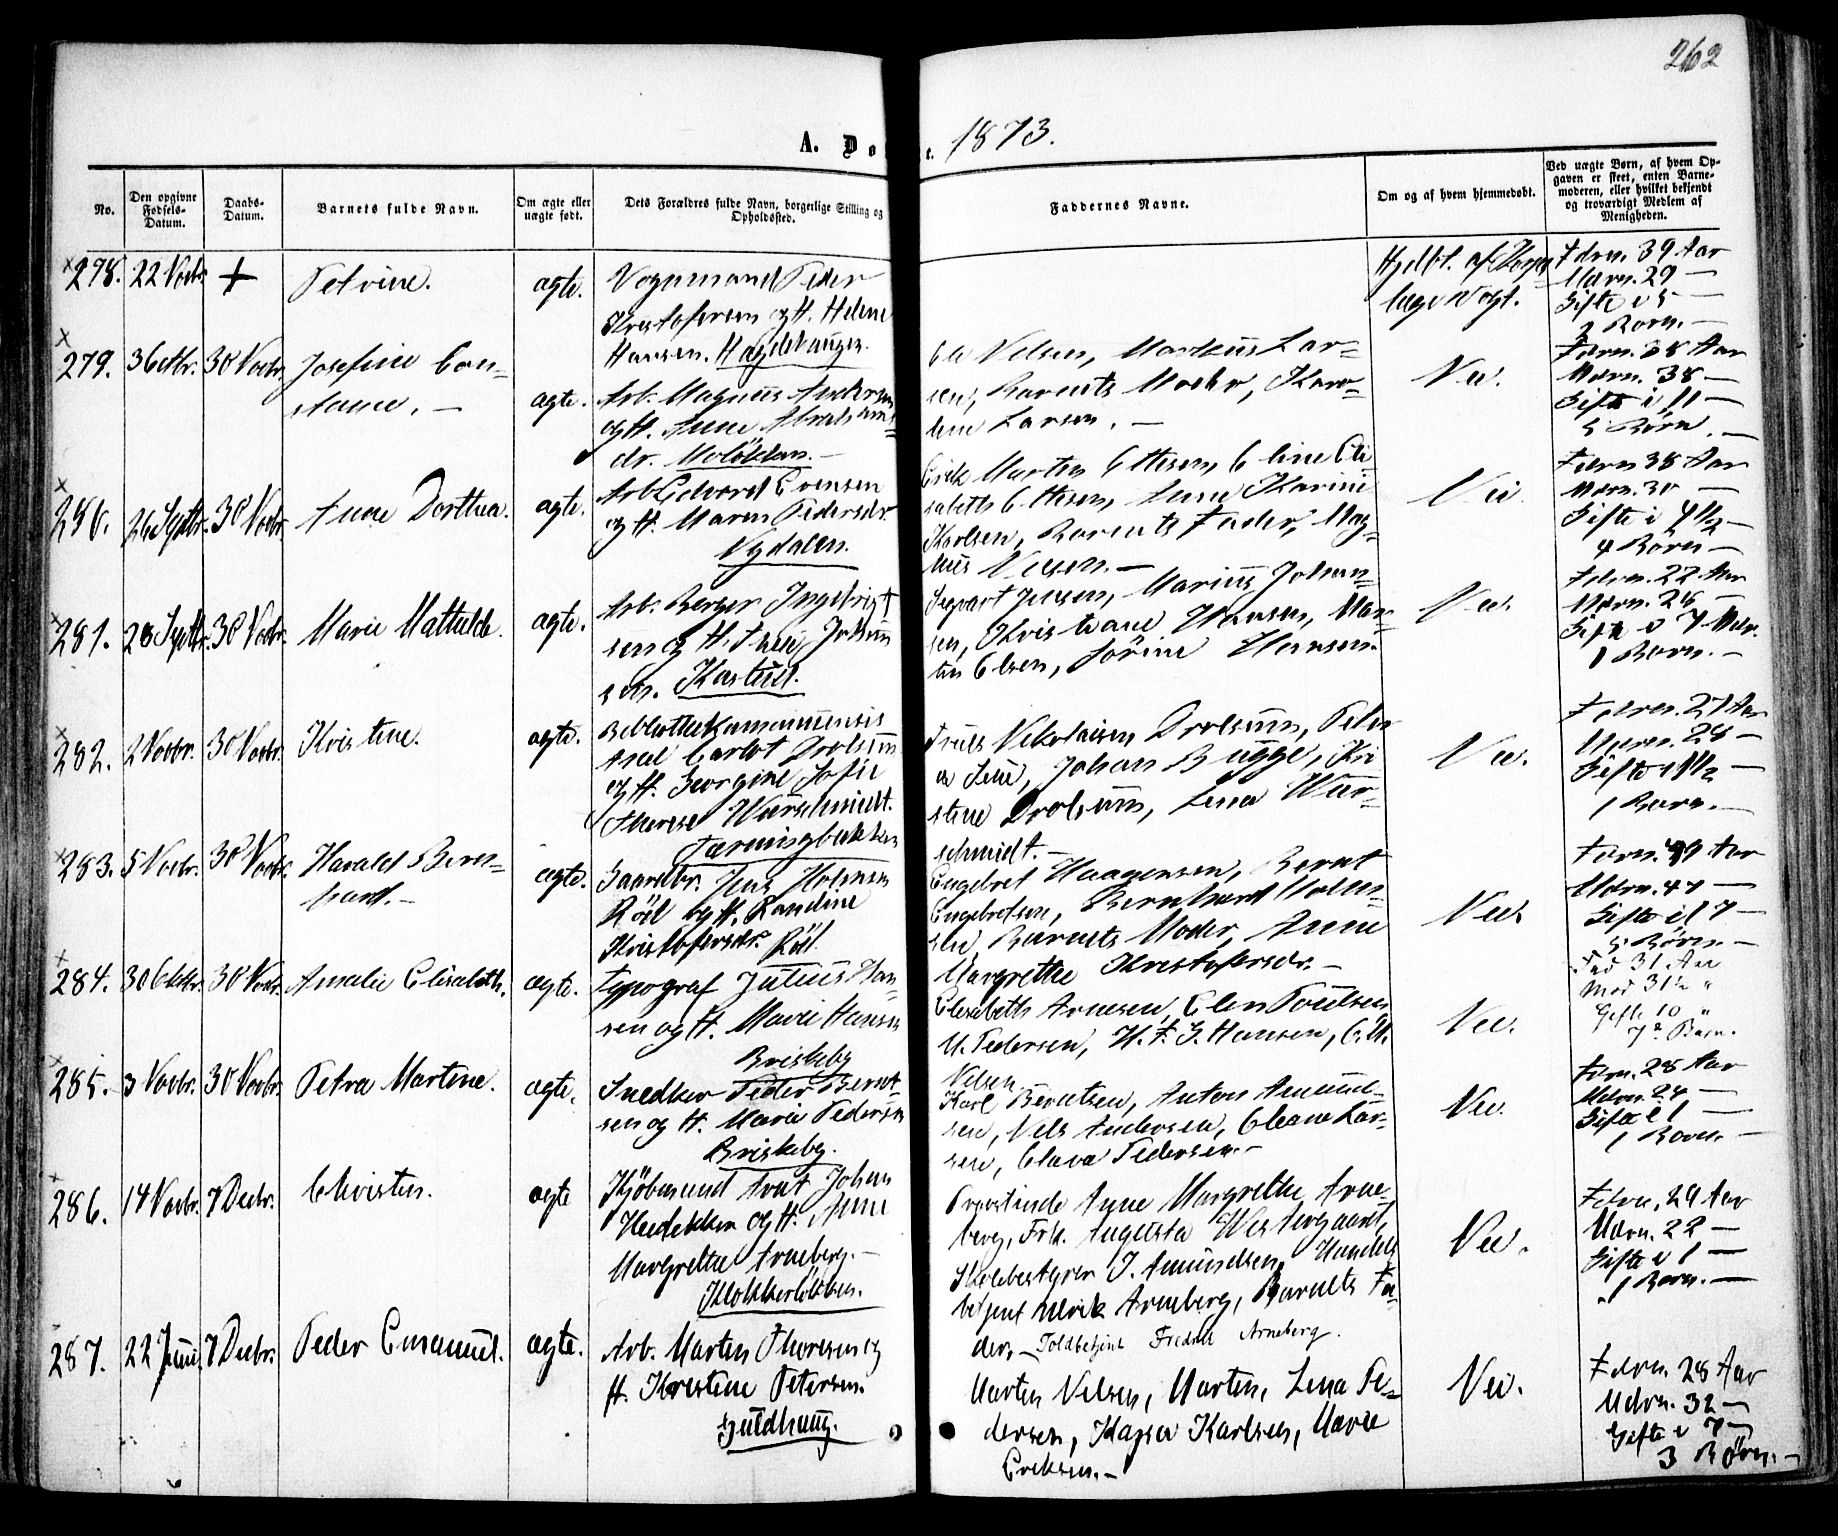 262
A. Dø
t. 1873.
No.
Den opgivne Fødsels-Datum.
Daabs-Datum.
Barnets fulde Navn.
Om ægte eller uægte født.
Dets Forældres fulde Navn, borgerlige Stilling og Opholdssted.
Faddernes Navne.
Om og af hvem hjemmedøbt.
Ved uægte Børn, af hvem Opgaven er skeet, enten Barnemoderen, eller hvilket bekjendt og troværdigt Medlem af Menigheden.
278. 22 Novbr. + Petrine. ægte.
Vognmand Peder
Kristofersen og H. Helene
Hansen. Hægdehaugen.
Hjdbt. af
læge Vogt.
Fdrn. 39 Aar
Mdrn. 29 —
Gifte i 5 —
2 Børn. —
279. 3 Octbr. 30 Novbr. Josefine Con=
stance. — ægte.
Arb. Magnus Andersen
og H. Anne Abrahams=
dr. Moløkken. —
Ole Nilsen, Markus Lar=
sen, Barnets Moder, Karo=
line Larsen. —
Nei.
Fdrn. 38 Aar
Mdrn. 38 —
Gifte i 11 —
5 Børn. —
280. 26 Septbr. 30 Novbr. Anne Dorthea. ægte.
Arb. Edvard Evensen
og H. Maren Pedersdr.
Nydalen.
Erik Martin Ottesen, Oline Eli
sabeth Ottesen, Anne Karine
Karlsen, Barnets Fader, Mag=
nus Nilsen. —
Nei.
Fdrn 38 Aar
Mdrn. 30 —
Gifte i 4 1/2 —
4 Børn —
281. 28 Septbr. 30 Novbr. Marie Mathilde. ægte.
Arb. Berger Ingebrigt
sen og H. Thea Johan
sen. Kastud.
Segvart Jensen, Marius Johan=
sen, Kristiane Hansen, Mar=
tin Olsen, Sørine Hansen.
Nei.
Fdrn. 22 Aar
Mdrn. 28 —
Gifte i 7 Mdr.
1 Barn. —
282. 2 Novbr. 30 Novbr. Kristine. ægte.
Bibliothekamanuensis
Axel Carlot Drolsum
og H. Georgine Sofie
Therese Warschmidt.
Tærningbakken
Truls Nikolaisen Drolsum, Peter
a Lein, Johan Bugge, Kri
stine Drolsum, Lena War=
schmidt. —
Nei.
Fdrn. 27 Aar
Mdrn. 28 —
Gifte i 1 1/2 —
1 Barn. —
283. 5 Novbr. 30 Novbr. Harald Bern=
hard. — ægte.
Gaardbr. Jens Hansen
Röel og H. Randine
Kristofersdr. Röel.
Engebret Haagensen, Bernt
Engebretsen, Bernhard Holm=
sen, Barnets Moder, Anne
Margrethe Kristofersdr. —
Nei.
Fdrn. 49 Aar
Mdrn. 47 —
Gifte i 17 —
5 Børn. —
284. 30 Oktbr. 30 Novbr. Amalie Elisabeth. ægte.
Typograf Julius Han
sen og H. Marie Hansen
Briskeby
Elisabeth Arnesen, Elen Poulsen
M. Pedersen, H. F. G. Hansen, C. M.
Nilsen.
Nei.
Fad 31 Aar
Mod 31 1/2 "
Gifte 10 "
7 Børn.
285. 3 Novbr. 30 Novbr. Petra Martine. ægte.
Snedker Peder Bernt=
sen og H. Maria Pedersen
Briskeby.
Karl Berntsen, Anton Amund=
sen, Nils Andersen, Oleane Lar=
sen, Clava Pedersen. —
Nei.
Fdrn. 28 Aar
Mdrn. 24 —
Gifte i 1 —
1 Barn. —
286. 14 Novbr. 7 Decbr. Christen. ægte
Kjöbmand Arnt Johan
Heidekken og H. Anne
Margrethe Arneberg. —
Klokkerløkken.
Provstinde Anne Margrethe Arne=
berg, Frk. Augusta Westergaard,
Skolebestyrer J. Amundsen, Handels
betjent Ulrik Arneberg, Barnets Fa=
der. — Toldbetjent Fredrik Arneberg.
Nei.
Fdrn. 29 Aar
Mdrn. 22 —
Gifte i 1 —
1 Barn. —
287. 22 Juni. 7 Decbr. Peder Emanuel. ægte.
Arb. Marten Thoresen og
H. Kristine Petersen.
Guldhaug.
Marten Nilsen, Marten, Lena Pe=
dersen, Kajsa Karlsen, Marie
Eriksen. —
Nei.
Fdrn. 28 Aar
Mdrn. 32 —
Gifte i 7 —
3 Børn. —